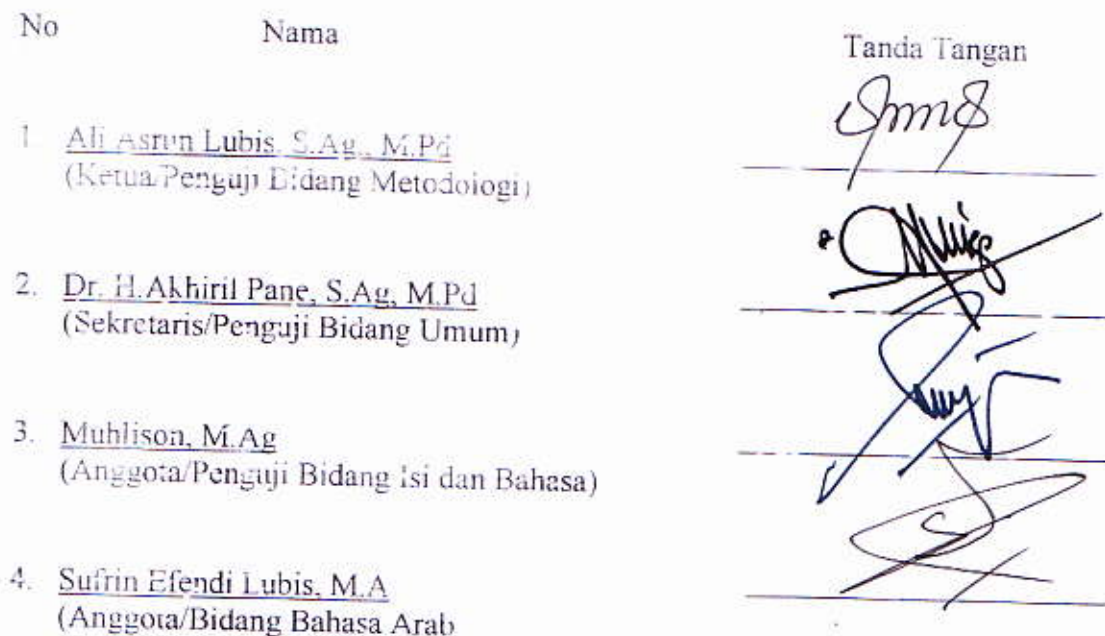 No Nama Tanda Tangan
1. Ali Asrun Lubis, S.Ag., M.Pd
(Ketua/Penguji Bidang Metodologi)
2. Dr. H.Akhiril Pane, S.Ag, M.Pd
(Sekretaris/Penguji Bidang Umum)
3. Muhlison, M.Ag
(Anggota/Penguji Bidang Isi dan Bahasa)
4. Sufrin Efendi Lubis, M.A
(Anggota/Bidang Bahasa Arab